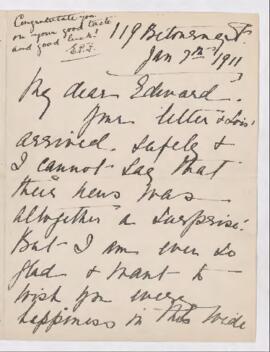 Congratulate you
on your good taste
and good luck!
E.P.F.
119 Bitournay St
Jan 7th 1911
My dear Edward.
Your letter & Lois'
arrived safely &
I cannot say that
their news was
altogether a surprise.
But I am ever so
glad & want to
wish you every
happiness in this wide